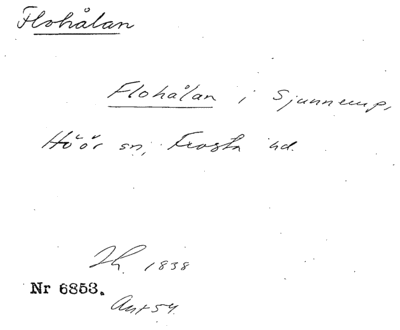 Flohålan
Flohålan i Sjunnerup,
Höör sn, Frosta hd.
1838
Nr 6853.